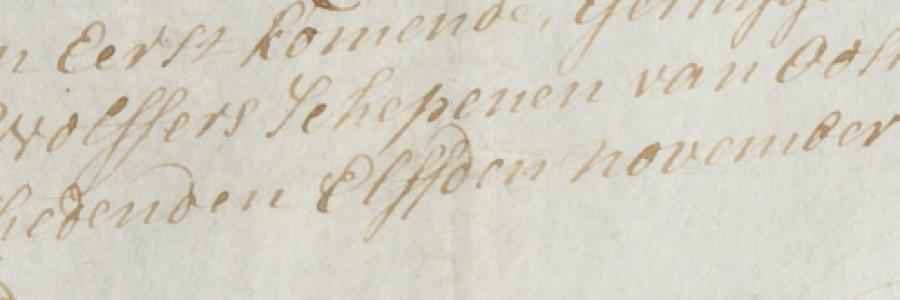 n Eerst komende, getuijg
Wolffers Schepenen van Oost
hedenden Elffden november